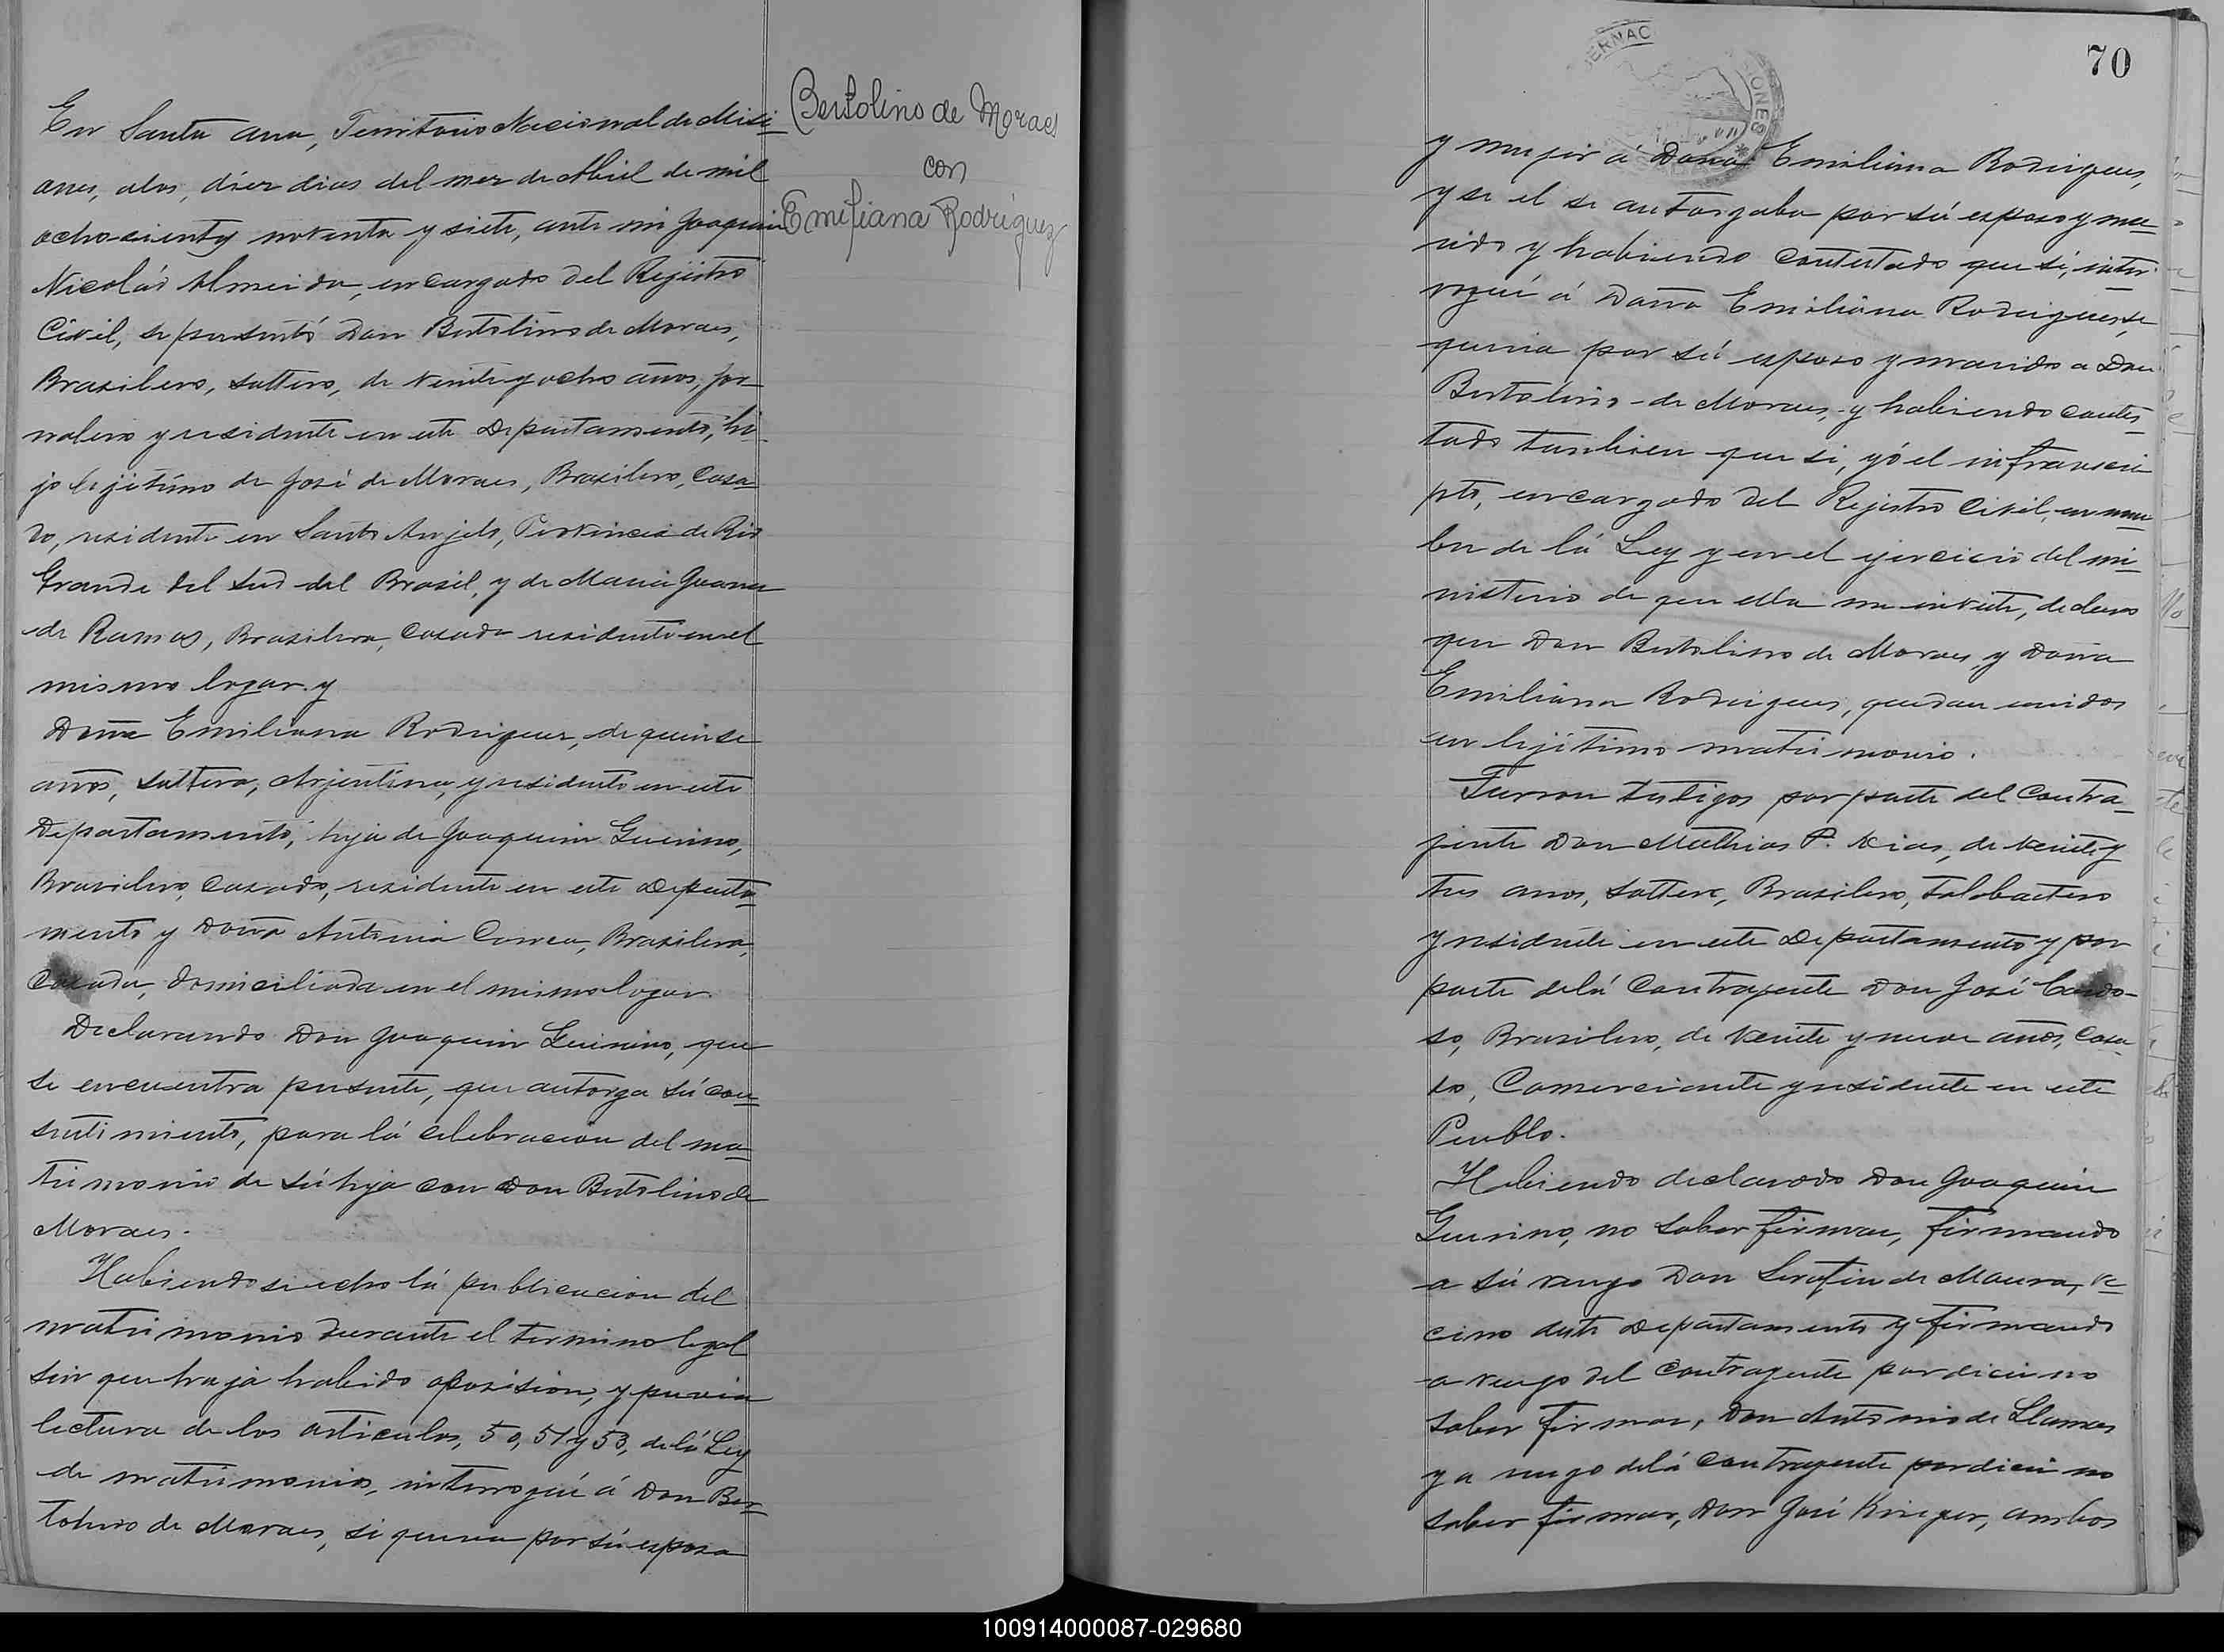 En Santa Ana, Territorio Nacional de Misi-
ones, alos, diez dias del mes de Abril de mil
ocho-cientos noventa y siete, ante mi Joaquin
Nicolás Almeida, encargado del Rejistro
Civil, se presentó Don Bertolino de Moraes,
Brasilero, soltero, de veinte y ocho años, jor-
nalero y residente en este Departamento, hi-
jo lejitimo de José de Moraes, Brasilero, Casa-
do, residente en Santo Angelo, Provincia de Rio
Grande del Sud del Brasil, y de Maria Juana
de Ramos, Brasilera, Casada residente en el
mismo logar. y
Doña Emiliana Rodrigues, de quinse
años, soltera, Arjentina, y residente en este
Departamento, hija de Joaquin Guirino,
Brasilero, Casado, residente en este Departa-
mento y Doña Antonia Correa, Brasilera,
Casada, domiciliada en el mismo logar.
Declarando Don Joaquin Guirino, que
se encuentra presente, que autorga sú con-
sentimiento, para lá celebracion del ma-
trimonio de sú hija con Don Bertolino de
Moraes.
Habiendo se echo lá publicacion del
matrimonio durante el termino legal
sin que haja habido oposision, y previa
lectura de los articulos, 50, 51 y 53, de lá Ley
de matrimonio, interrogué á Don Ber-
tolino de Moraes, si queria por sú esposa
Bertolino de Moraes
con
Emiliana Rodriguez
70
y mujer á Doña Emiliana Rodrigues,
y se el se autorgaba por sú esposo y ma-
rido y habiendo contestado que sí, inter-
rogué á Doña Emiliana Rodrigues, se
queria por sú esposo y marido a Don
Bertolino de Moraes, y habiendo contes-
tado tanbien que si, yó el infrascri
pto, encargado del Rejistro Civil, en nom
bre de lá Ley y en el ejercicio del mi-
nisterio de que ella me inviste, declaro
que Don Bertolino de Moraes y Doña
Emiliana Rodrigues, quedan unidos
en lejitimo matrimonio.
Fueron testigos por parte del Contra-
jente Don Mathias P. Dias, de veinte y
tres anos, soltero, Brasilero, Talabartero
y residente en este Departamento y por
parte delá Contrajente Don José Cardo-
so, Brasilero, de veinte y nueve años, Casa-
do, Comerciante y residente en este
Pueblo.
Habiendo declarado Don Joaquin
Guirino, no saber firmar, firmando
a sú ruego Don Serafin de Moura, ve-
cino deste Departamento y firmando
a ruego del Contrajente por dicir no
saber firmar, Don Antonio de Llamas
y a ruego delá Contrajente por dicir no
saber firmar, Don José Krieger, ambos
100914000087-029680